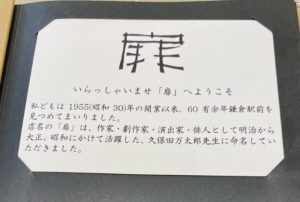 扉
いらっしゃいませ「扉」へようこそ
私どもは 1955(昭和 30)年の開業以来、60 有余年鎌倉駅前を
見つめてまいりました。
店名の「扉」は、作家・劇作家・演出家・俳人として明治から
大正、昭和にかけて活躍した、久保田万太郎先生に命名してい
ただきました。